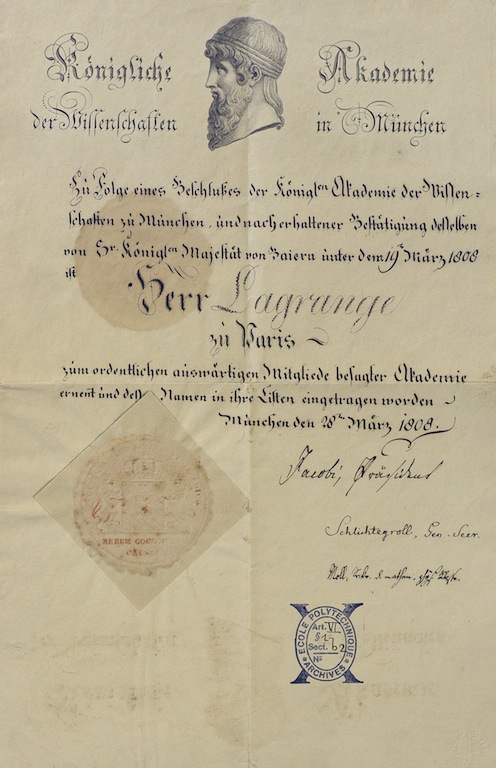 Königliche Akademie
der Wissenschaften in München
Zu Folge eines Beschlußes der Königl.en Akademie der Wissen=
schaften zu München, und nach erhaltener Bestätigung desselben
von Sr. Königl.en Majestät von Baiern unter dem 19.n März 1808
ist
Herr Lagrange
zu Paris
zum ordentlichen auswärtigen Mitgliede besagter Akademie
ernent und deß Namen in ihre Listen eingetragen worden
München den 28.n März 1808.
Jacobi, Präsident
Schlichtegroll, Gen. Secr.
Moll, Secr. d. mathem.
RERUM COGNOSCERE
CAUSAS
ECOLE POLYTECHNIQUE
Art. VI
§ 1
Sect. b2
No
ARCHIVES